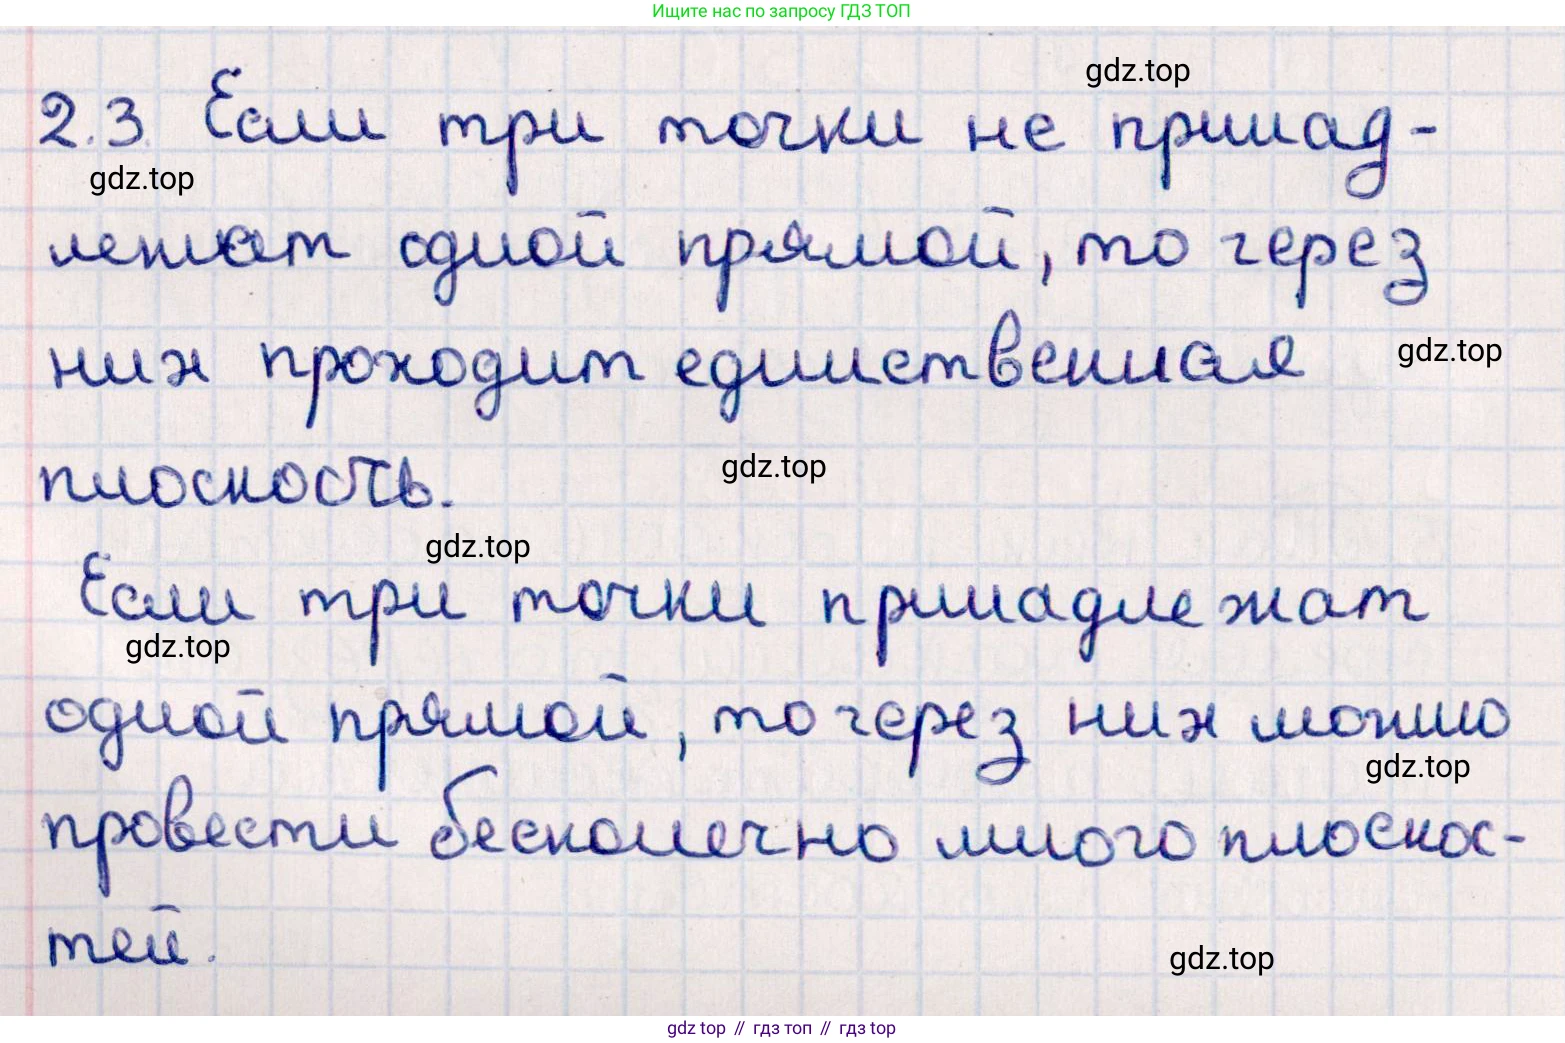 Ищите нас по запросу ГДЗ ТОП
gdz.top
2.3. Если три точки не принад-
gdz.top
лежат одной прямой, то через
них проходит единственная
gdz.top
плоскость.
gdz.top
gdz.top
Если три точки принадлежат
gdz.top
одной прямой, то через них можно
gdz.top
провести бесконечно много плоскос-
тей.
gdz.top
gdz top // гдз топ // гдз top